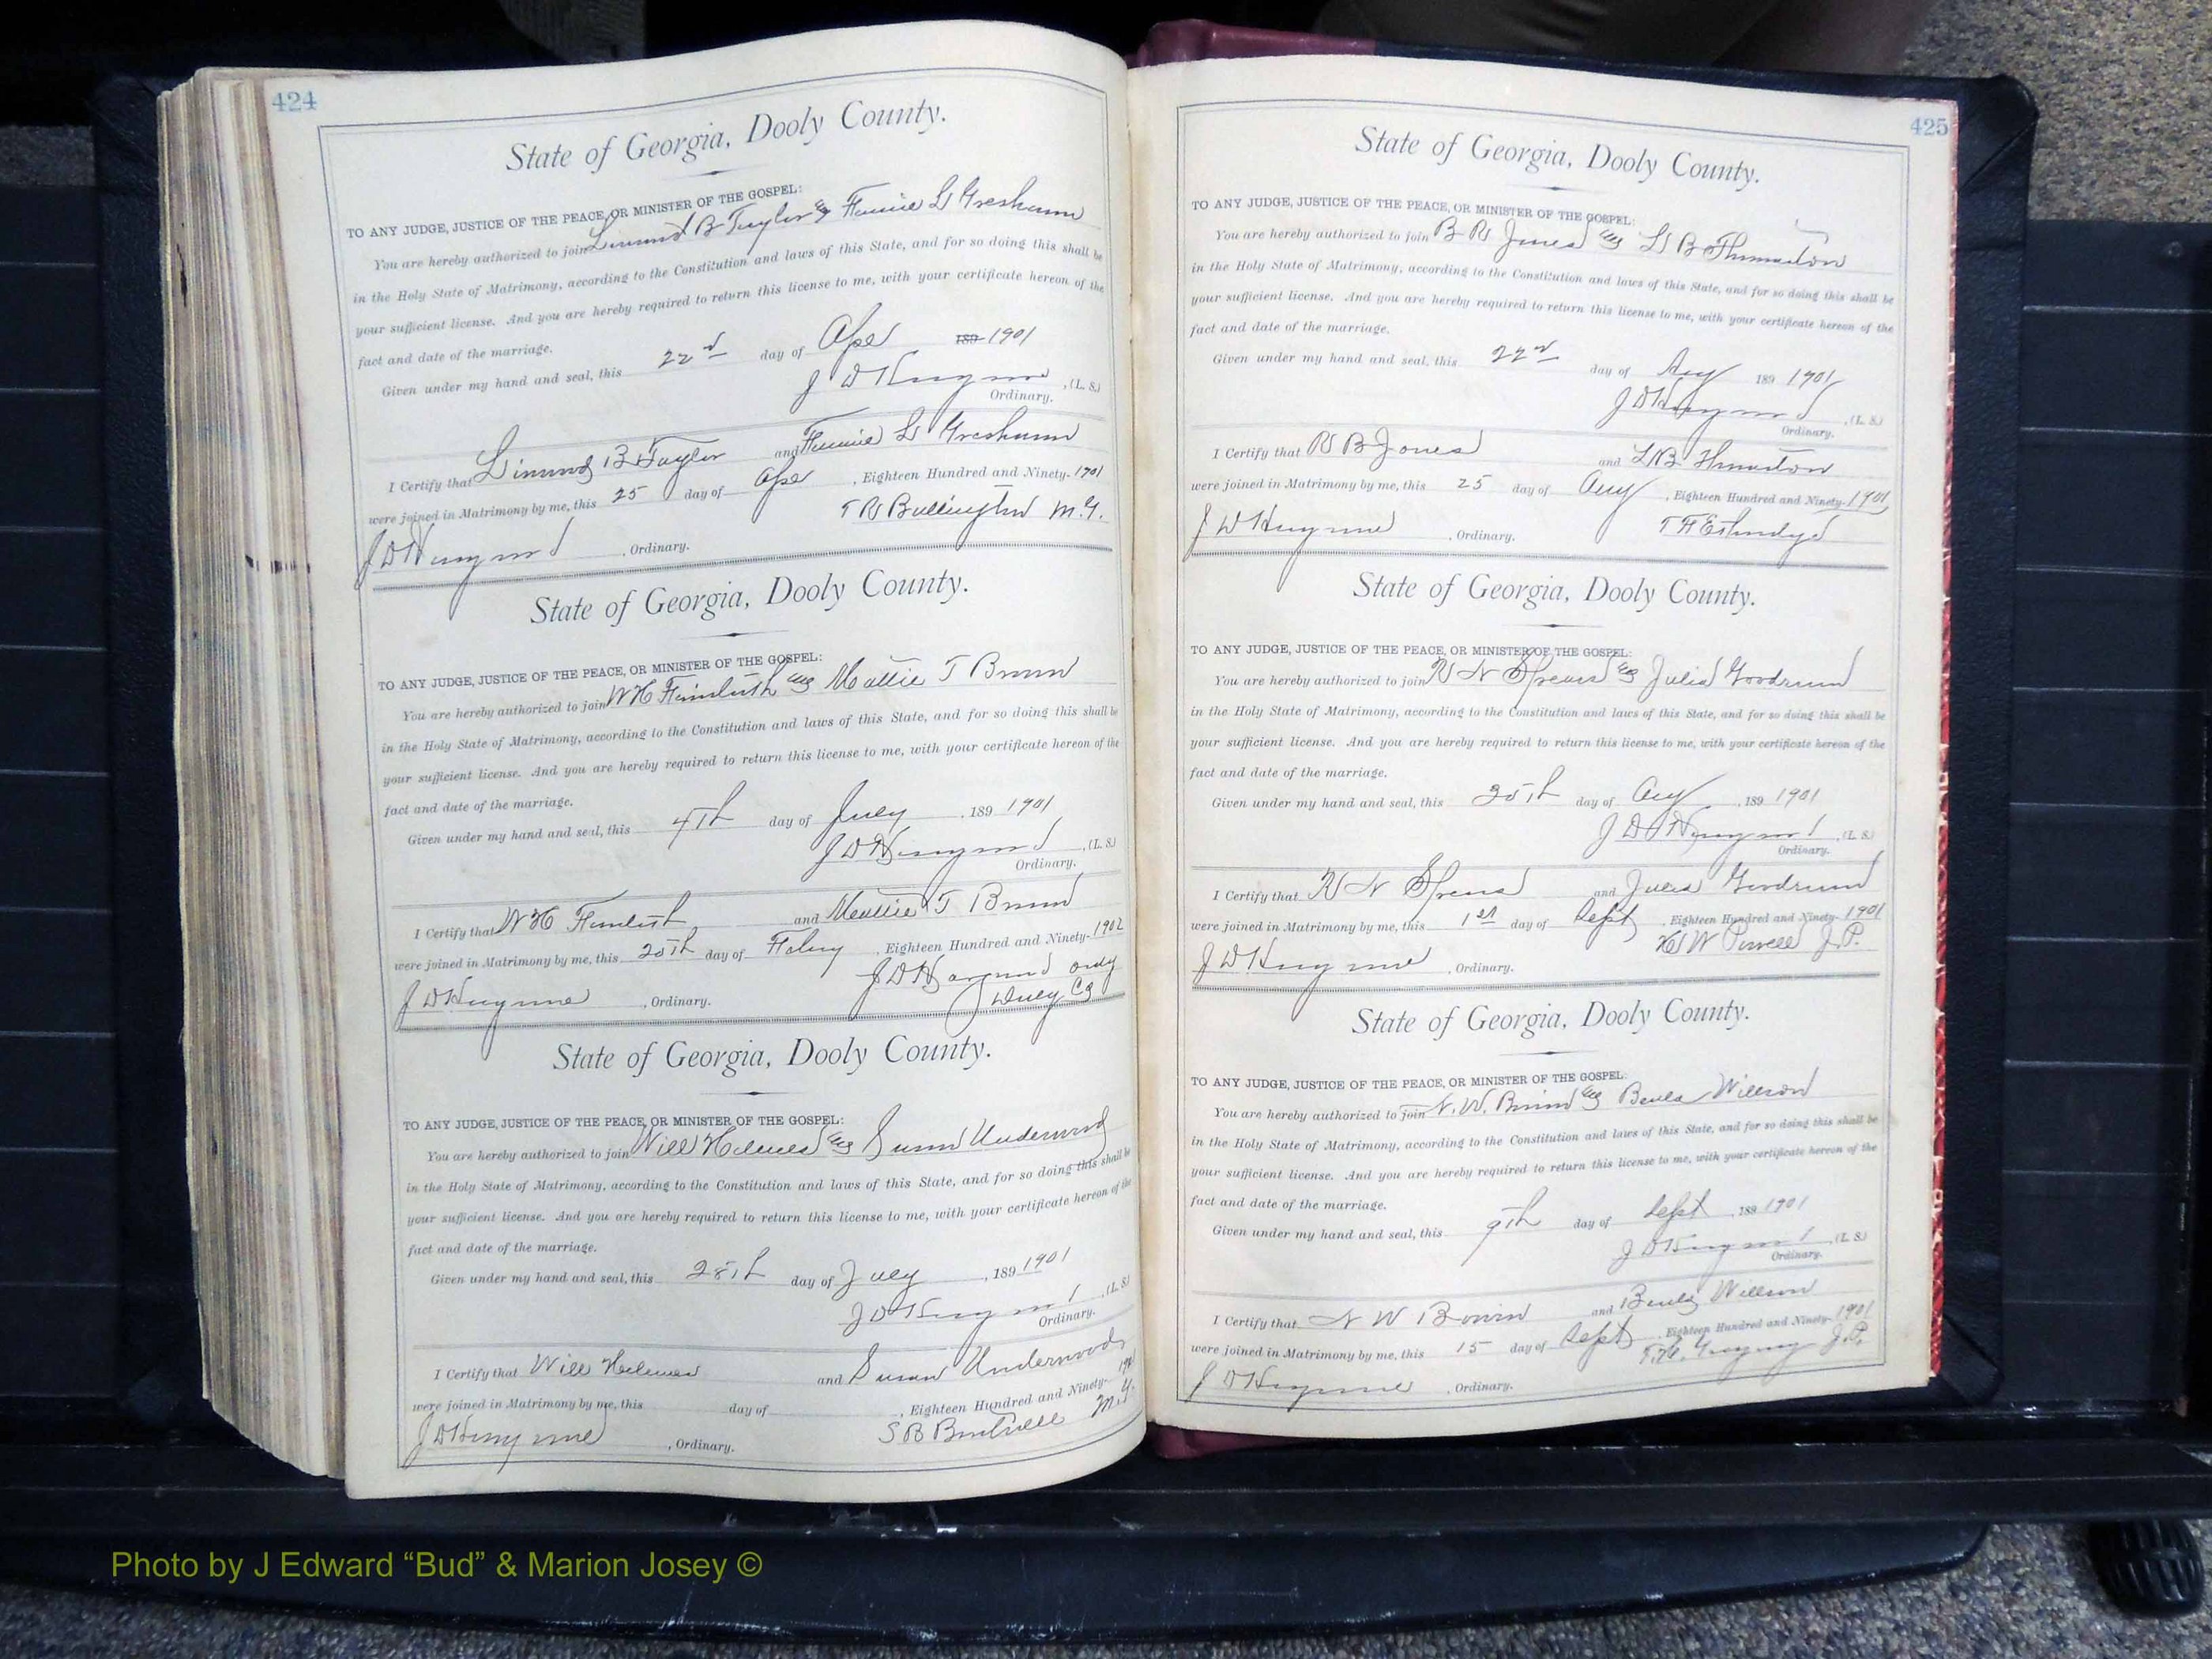 424
State of Georgia, Dooly County.
TO ANY JUDGE, JUSTICE OF THE PEACE, OR MINISTER OF THE GOSPEL:
You are hereby authorized to join B Taylor & L Gresham
in the Holy State of Matrimony, according to the Constitution and laws of this State, and for so doing this shall be
your sufficient license. And you are hereby required to return this license to me, with your certificate hereon of the
fact and date of the marriage.
Given under my hand and seal, this 22nd day of Apr 189 1901
J D , (L. S.)
Ordinary.
I Certify that B Taylor and L Gresham
were joined in Matrimony by me, this 25 day of Apr , Eighteen Hundred and Ninety- 1901
T R Bullington M.G.
J D , Ordinary.
State of Georgia, Dooly County.
TO ANY JUDGE, JUSTICE OF THE PEACE, OR MINISTER OF THE GOSPEL:
You are hereby authorized to join W H & Mattie T
in the Holy State of Matrimony, according to the Constitution and laws of this State, and for so doing this shall be
your sufficient license. And you are hereby required to return this license to me, with your certificate hereon of the
fact and date of the marriage.
Given under my hand and seal, this 4th day of July , 189 1901
J D , (L. S.)
Ordinary.
I Certify that W H and Mattie T
were joined in Matrimony by me, this day of , Eighteen Hundred and Ninety- 1902
J D Ordy
J D , Ordinary. Dooly Co
State of Georgia, Dooly County.
TO ANY JUDGE, JUSTICE OF THE PEACE, OR MINISTER OF THE GOSPEL:
You are hereby authorized to join Will Holmes & Susan Underwood
in the Holy State of Matrimony, according to the Constitution and laws of this State, and for so doing this shall be
your sufficient license. And you are hereby required to return this license to me, with your certificate hereon of the
fact and date of the marriage.
Given under my hand and seal, this 28th day of July , 189 1901
J D , (L. S.)
Ordinary.
I Certify that Will Holmes and Susan Underwood
were joined in Matrimony by me, this day of , Eighteen Hundred and Ninety- 1901
S B M.G.
J D , Ordinary.
425
State of Georgia, Dooly County.
TO ANY JUDGE, JUSTICE OF THE PEACE, OR MINISTER OF THE GOSPEL:
You are hereby authorized to join Jones & L B
in the Holy State of Matrimony, according to the Constitution and laws of this State, and for so doing this shall be
your sufficient license. And you are hereby required to return this license to me, with your certificate hereon of the
fact and date of the marriage.
Given under my hand and seal, this 22nd day of Aug 189 1901
J D , (L. S.)
Ordinary.
I Certify that R B Jones and L B
were joined in Matrimony by me, this 25 day of Aug , Eighteen Hundred and Ninety- 1901
J D , Ordinary.
State of Georgia, Dooly County.
TO ANY JUDGE, JUSTICE OF THE PEACE, OR MINISTER OF THE GOSPEL:
You are hereby authorized to join R N Spears & Julia Goodrum
in the Holy State of Matrimony, according to the Constitution and laws of this State, and for so doing this shall be
your sufficient license. And you are hereby required to return this license to me, with your certificate hereon of the
fact and date of the marriage.
Given under my hand and seal, this day of Aug , 189 1901
J D , (L. S.)
Ordinary.
I Certify that R N Spears and Julia Goodrum
were joined in Matrimony by me, this 1st day of Sept , Eighteen Hundred and Ninety- 1901
W Powell J.P.
J D , Ordinary.
State of Georgia, Dooly County.
TO ANY JUDGE, JUSTICE OF THE PEACE, OR MINISTER OF THE GOSPEL:
You are hereby authorized to join N. W. & Beula Willson
in the Holy State of Matrimony, according to the Constitution and laws of this State, and for so doing this shall be
your sufficient license. And you are hereby required to return this license to me, with your certificate hereon of the
fact and date of the marriage.
Given under my hand and seal, this 9th day of Sept , 189 1901
J D , (L. S.)
Ordinary.
I Certify that N W and Beula Willson
were joined in Matrimony by me, this 15 day of Sept , Eighteen Hundred and Ninety- 1901
J.P.
J D , Ordinary.
Photo by J Edward “Bud” & Marion Josey ©